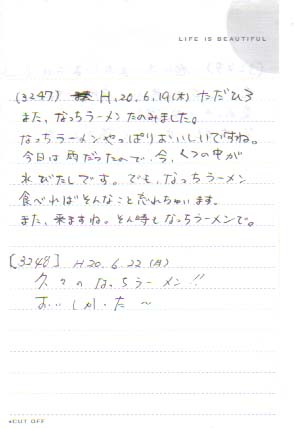 LIFE IS BEAUTIFUL
(3247) H.20.6.19(木) ただひろ
また、なっちラーメンたのみました。
なっちラーメンやっぱりおいしいですね。
今日は雨だったので、今、くつの中が
水びたしです。でも、なっちラーメン
食べればそんなこと忘れちゃいます。
また、来ますね。そん時もなっちラーメンで。
[3248] H20.6.22(月)
久々のなっちラーメン!!
おいしかった〜
CUT OFF